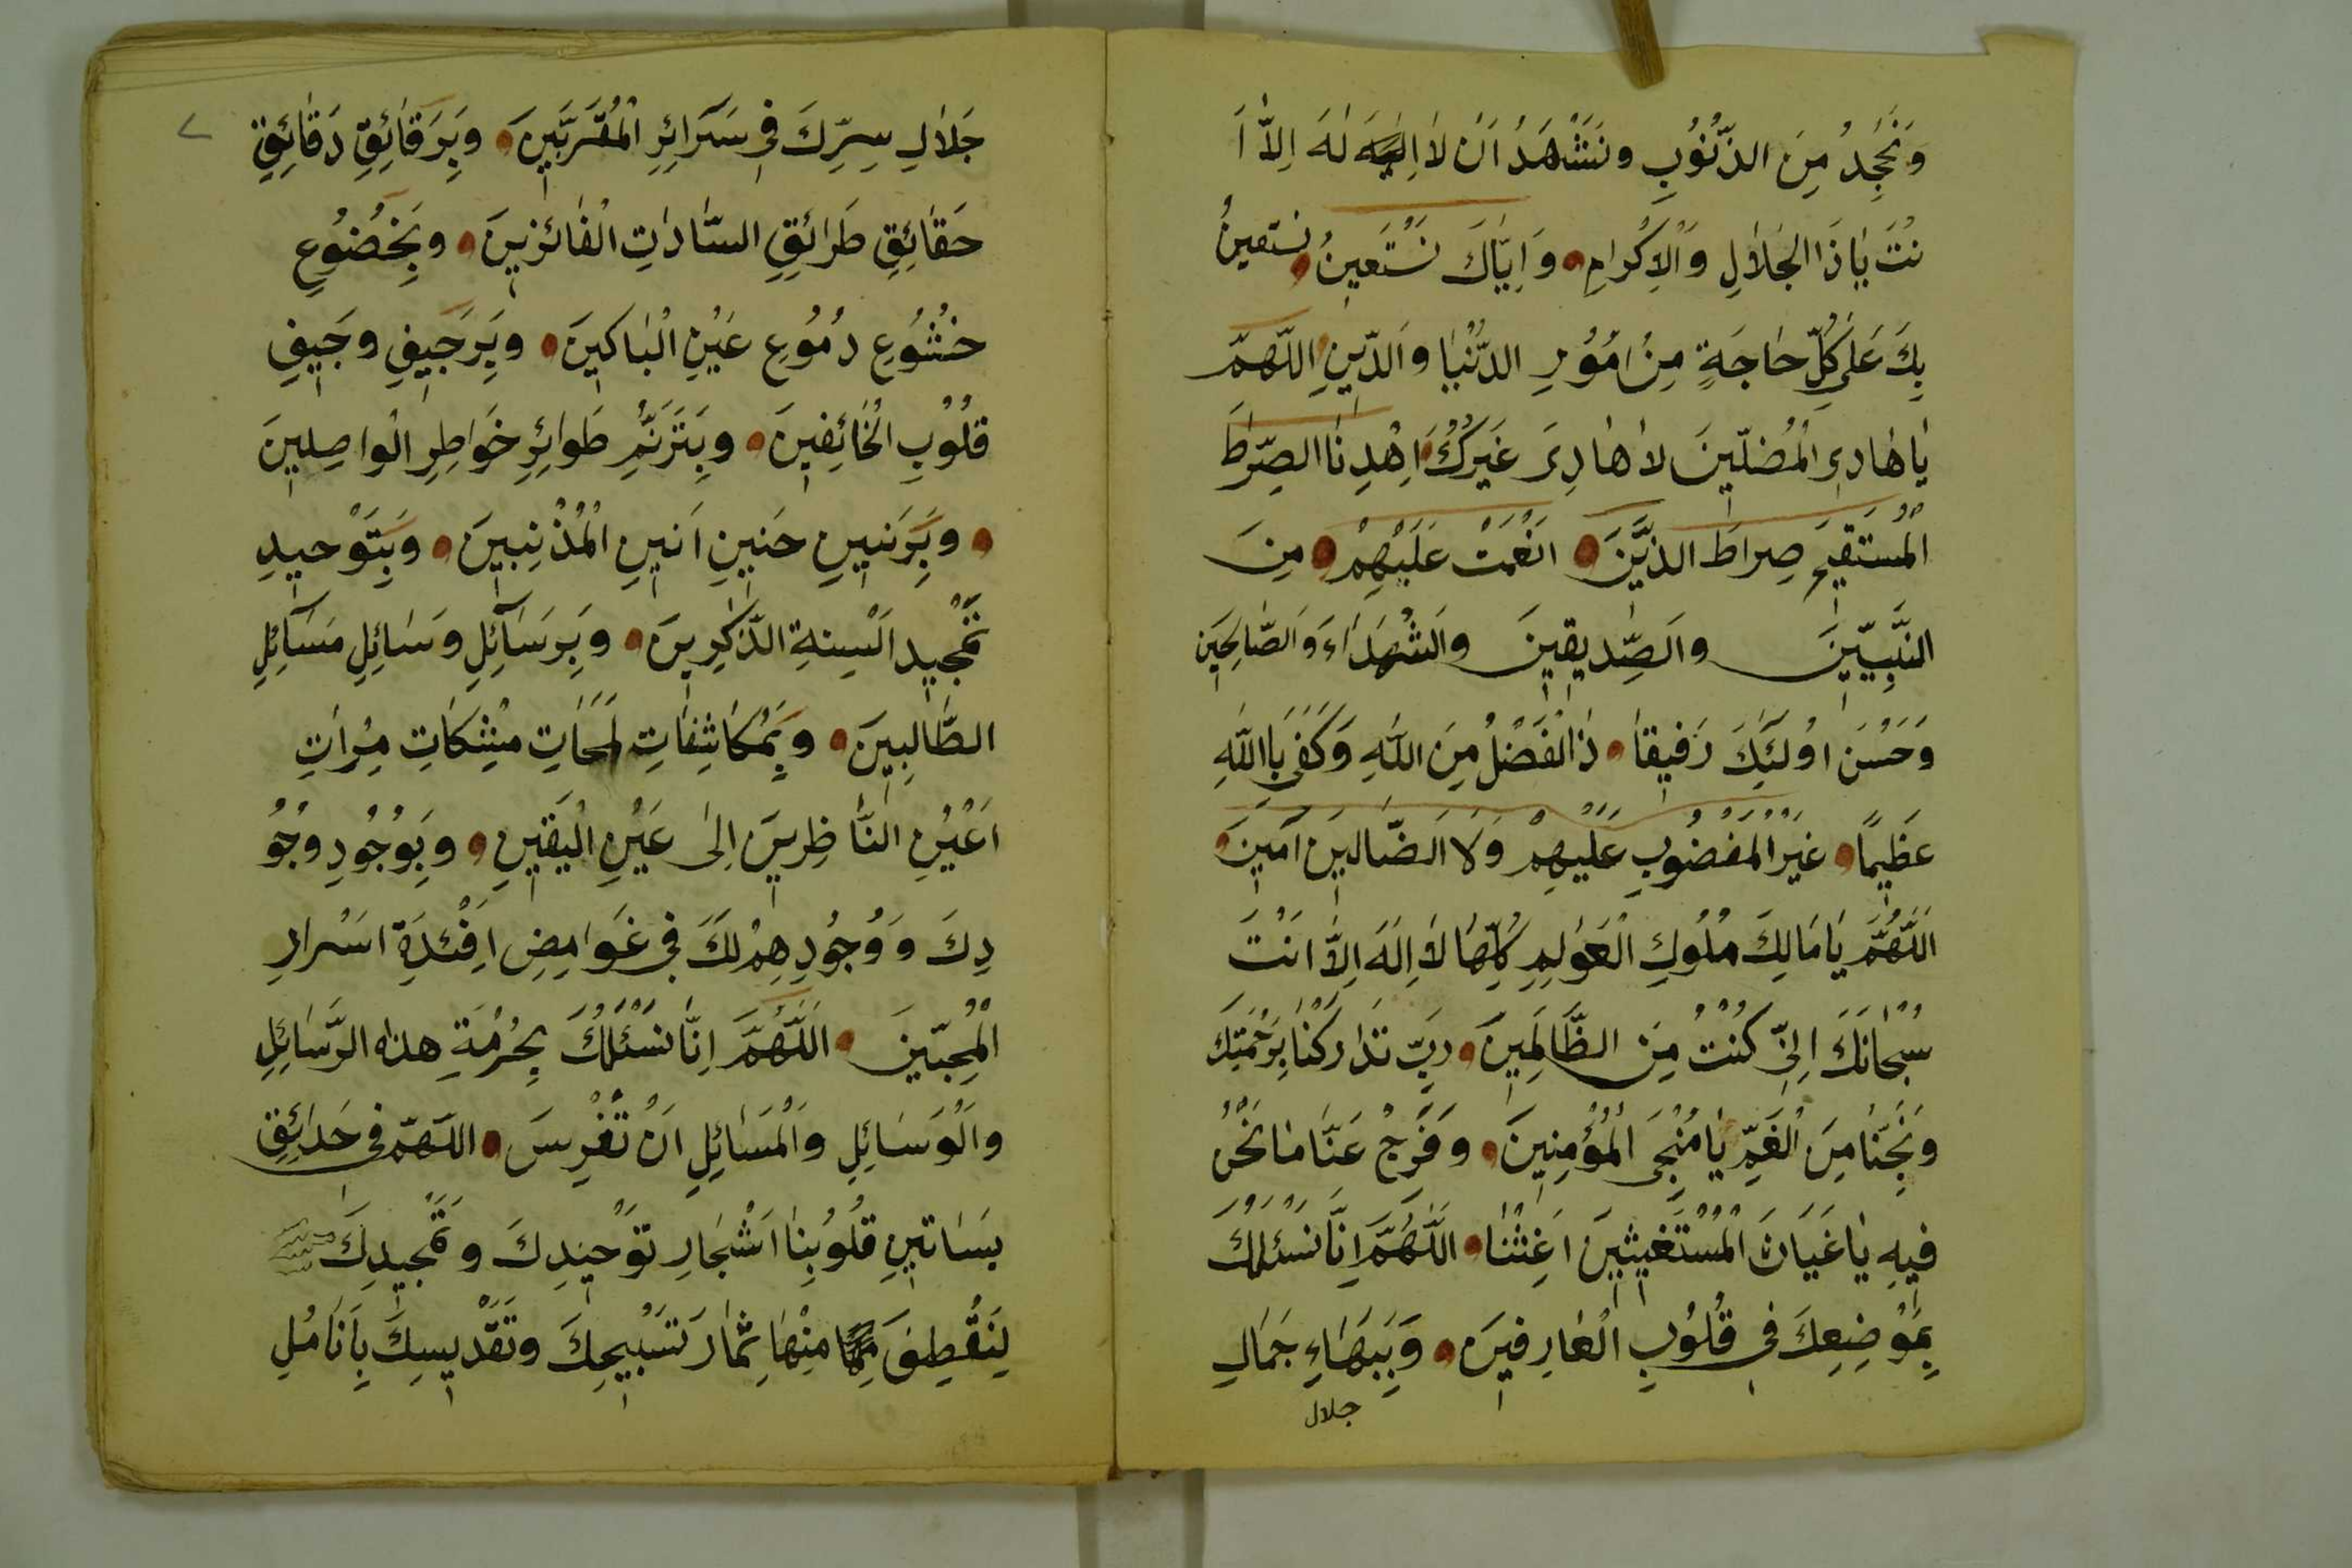 وَنَجِدُ مِنَ الذُّنُوْبِ ونَشْهَدُ اَنْ لاٰ اِلٰهَ لهَ اِلاّٰ اَ
نْتَ يٰاذَا الجَلاٰلِ وَالْاِكْرامِ وَاِيّٰاكَ نَسْتَعِينُ نستعينُ
بِكَ عَلىٰ كُلِّ حٰاجَةٍ مِنْ اُمُوْرِ الدُّنْيٰا وَالدّينِ اللّهمّ
يٰاهٰادِى الْمُضلّينَ لاٰ هٰادِىَ غَيْرُكَ اِهْدِنٰا الصِّرٰطَ
الْمُسْتَقيمَ صِراطَ الذّينَ انَعْمَتْ عَلَيْهِمْ مِنَ
النَّبِيّينَ والصِّدِّيقينَ والشُّهَدٰاءَ وَالصّٰالِحينَ
وَحَسُنَ اوُلئِكَ رَفيقاً ذٰ الْفَضْلُ مِنَ اللّٰهِ وَكَفىٰ بِاللّٰهِ
عَظيمًا غَيْرِ الْمَغضُوْبِ عَلَيْهِمْ وَلاَ الضّٰالينَ آمينَ
اَللّٰهُمَّ يٰامٰالِكَ مُلُوكِ الْعَوٰلِمِ كُلِّهٰا لاٰ اِلٰهَ اِلاّٰ انْتَ
سُبْحٰانَكَ اِنّى كُنْتُ مِنَ الظّٰالِمينَ ربِّ تَدٰارَكْنٰا بِرَحْمَتِكَ
ونَجِّنٰا مِنَ الْغَمِّ يٰا مُنْجِىَ الْمُؤْمِنينَ وفَرِّجْ عَنّٰا مٰا نَحْنُ
فيهِ يٰا غَيٰاثَ الْمُسْتَغيثينَ اَغِثْنٰا اللَّهُمَّ اِنّٰا نَسْئَلُكَ
بِمَوْضِعِكَ فى قُلُوْبِ الْعٰارِفينَ وَبِبَهٰاءِ جَمٰالِ
جلال
جَلاٰلِ سِرِّكَ فى سَرٰائِرِ الْمُقَرَّبينَ وبِرَقٰائِقِ دَقٰائِقِ
حَقٰائِقِ طَرٰائِقِ السّٰادٰاتِ الْفٰائزينَ وبِخُضُوْعِ
خُشُوْعِ دُمُوْعِ عَيْنِ الْبٰاكينَ وبِرَجيفِ وَجيفِ
قلُوْبِ الْخٰائِفينَ وبِتَرَنُّمِ طَوائِرِ خَوٰاطِرِ الْواصِلينَ
وبِرَنينِ حَنينِ اَنينِ الْمُذْنِبينَ وبِتَوْحيدِ
تَمْجيدِ الْسِنةِ الذّٰكِرينَ وبِرَسٰائِلِ وَسٰائِلِ مَسٰائِلِ
الطّٰالِبينَ وبِمُكٰاشِفٰاتِ لَمَحٰاتِ مِشْكٰاتِ مِرْاتِ
اَعْيُنِ النّٰاظِرينَ اِلىٰ عَيْنِ الْيَقينِ وبِوُجُودِ وُجُوْ
دِكَ وَوُجُوْدِهِمْ لكَ فى غَوٰامِضِ اَفْئدَةِ اسْرارِ
الْمُحِبّينَ اَللّٰهُمَّ اِنّٰا نَسْئَلُكَ بِحُرْمَةِ هذه الرَّسٰائِلِ
والْوَسٰائِلِ والْمَسٰائِلِ اَنْ تَغْرِسَ اللّهمّ فى حَدٰائِقِ
بَسٰاتينِ قلُوُبِنٰا اَشْجٰارِ تَوْحيدِكَ وتَمْجيدِكَ
لِنَقْطِفَ مِنْهٰا ثِمٰارَ تَسْبيحِكَ وتَقْديسِكَ بِاَنٰامُلِ